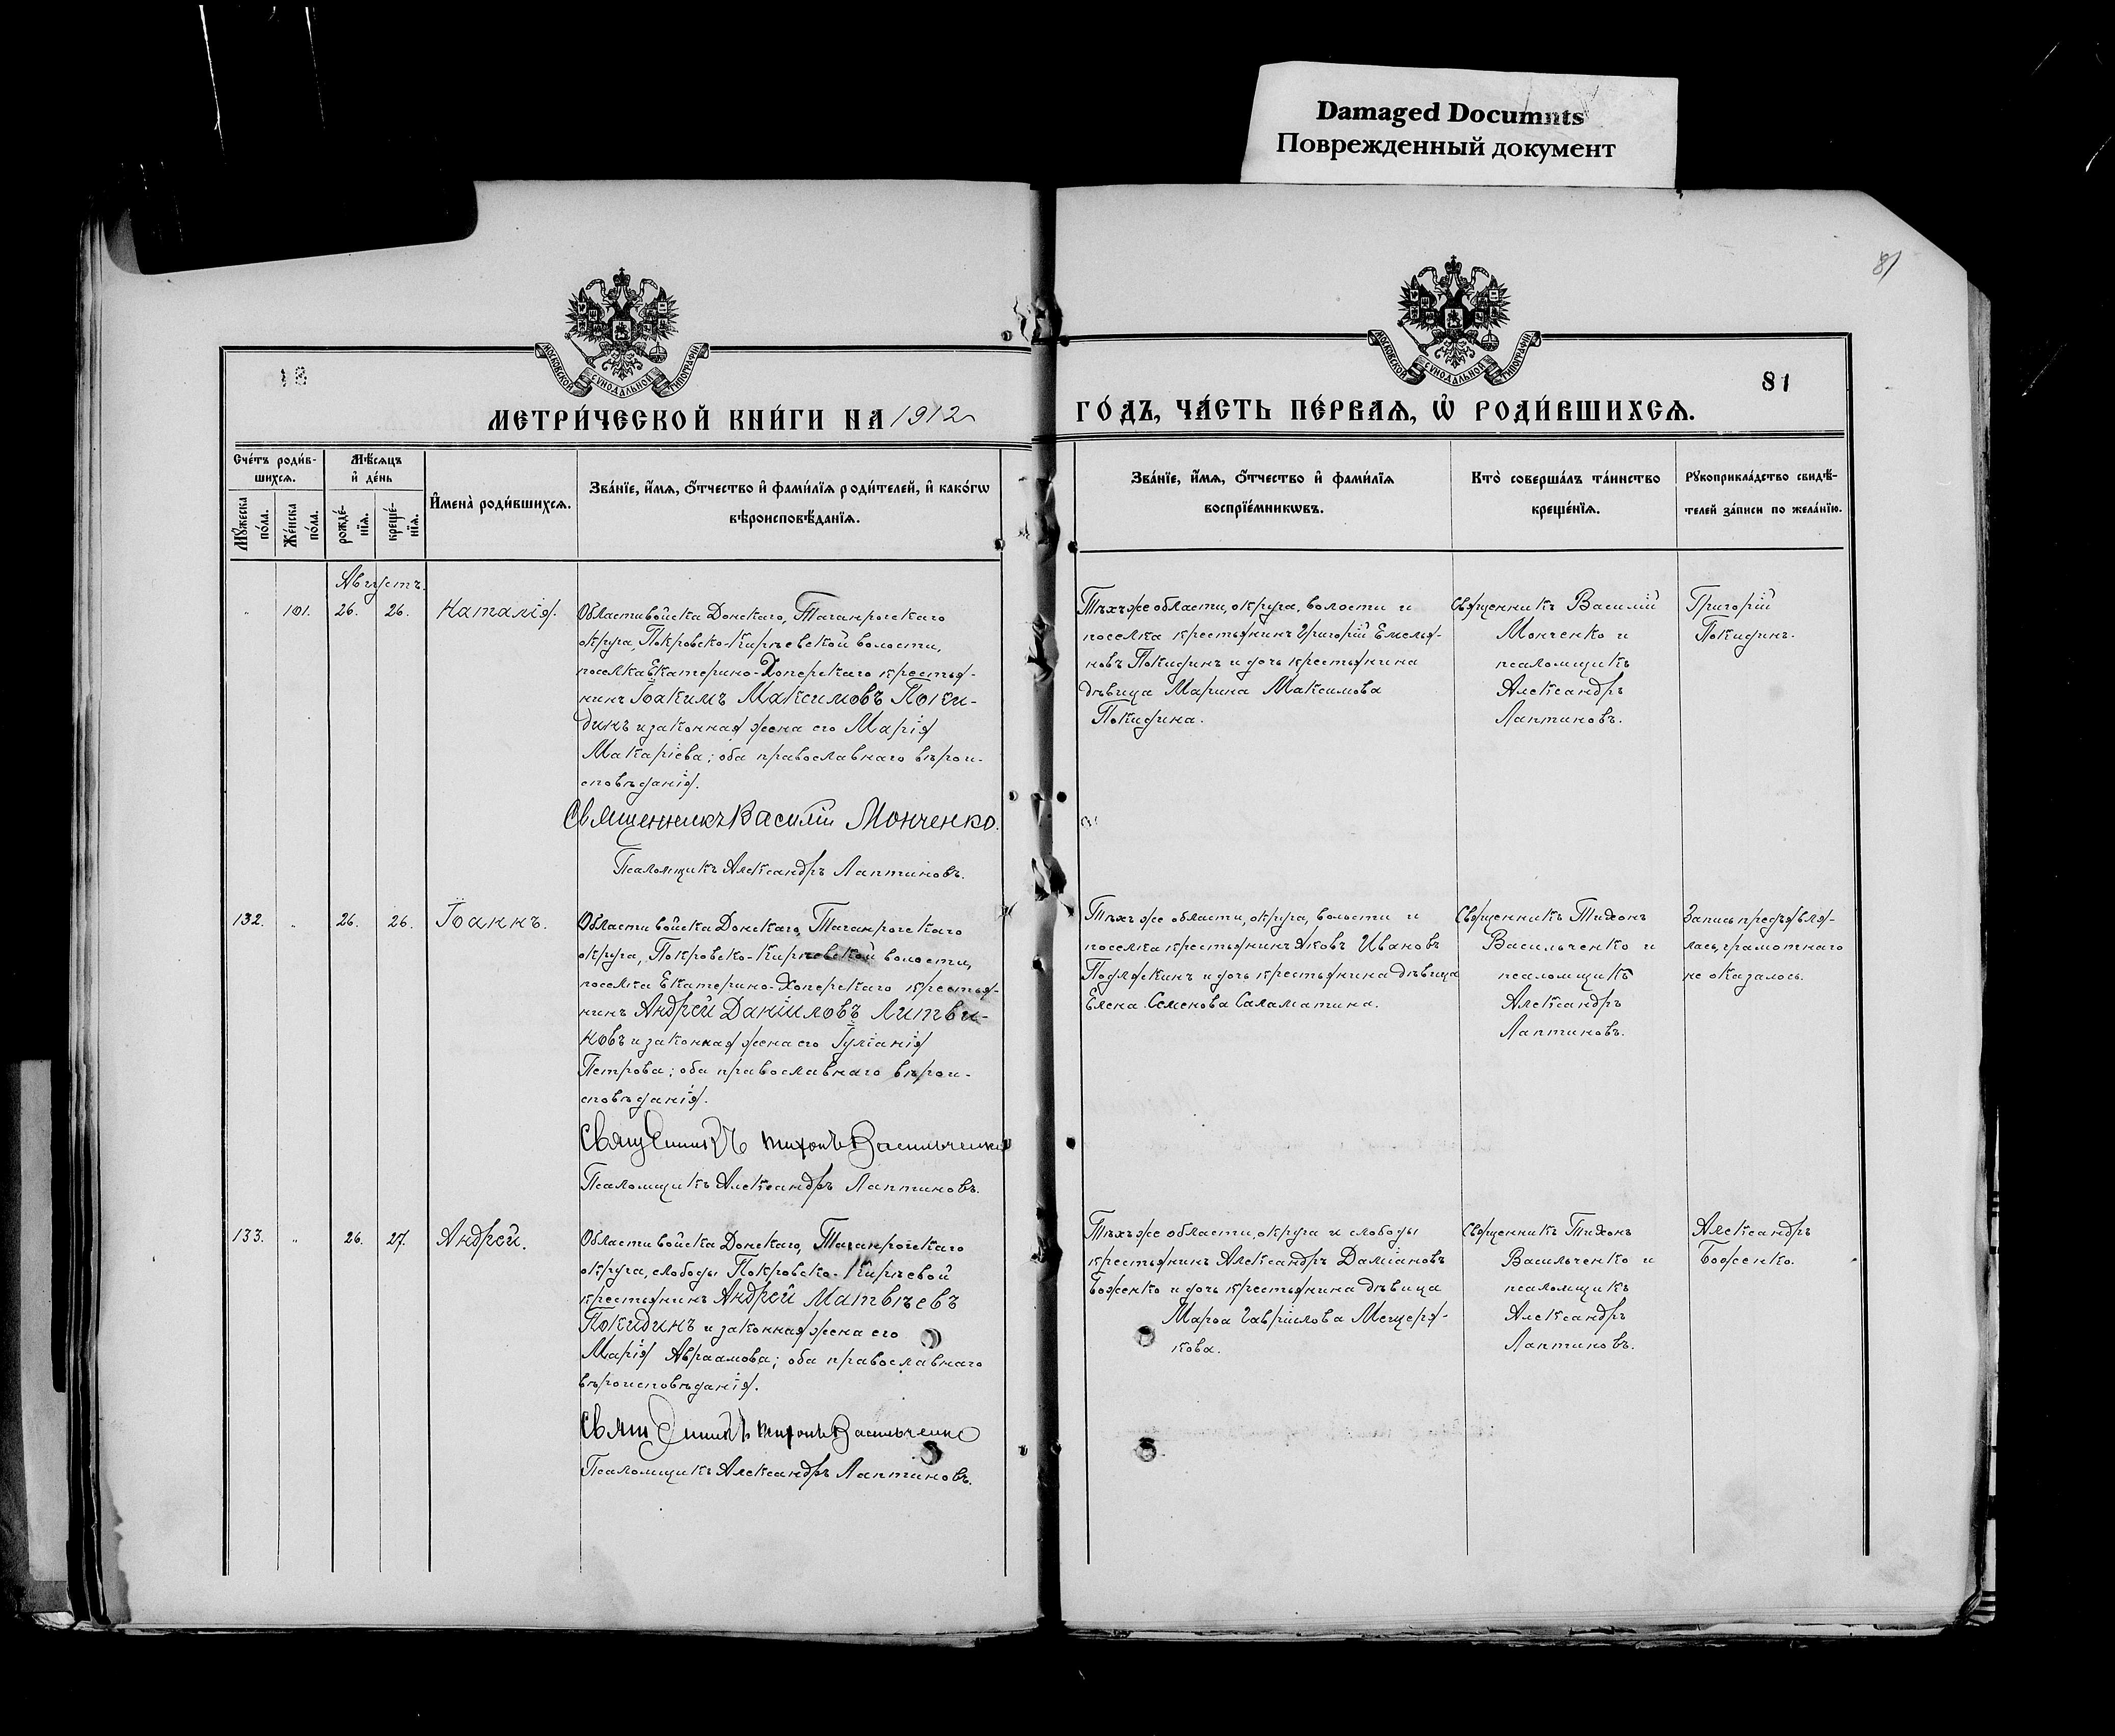 Damaged Documnts
Поврежденный документ
81
81
81
МОСКОВСКОЙ СѴНОДАЛЬНОЙ ТИПОГРАФІИ
МОСКОВСКОЙ СѴНОДАЛЬНОЙ ТИПОГРАФІИ
МЕТРИ́ЧЕСКОЙ КНИ́ГИ НА 1912
ГО́ДЪ, ЧА́СТЬ ПЕ́РВАѦ, Ѡ҆ РОДИ́ВШИХСѦ.
Сче́тъ роди́в-
шихсѧ.
Мꙋ́жеска по́ла.
Же́нска по́ла.
Мѣ́сѧцъ
и҆ де́нь
рожде́-
нїѧ.
креще́-
нїѧ.
И҆мена̀ роди́вшихсѧ.
Зва́нїе, и҆́мѧ, ѻ҆́тчество и҆ фами́лїѧ роди́телей, и҆ како́гѡ
вѣроисповѣ́данїѧ.
Зва́нїе, и҆́мѧ, ѻ҆́тчество и҆ фами́лїѧ
воспрїе́мникѡвъ.
Кто̀ соверша́лъ та́инство
креще́нїѧ.
Рꙋкоприкла́дство свидѣ́-
телей за́писи по жела́нїю.
Августъ.
" 101. 26. 26. Наталія.
Области войска Донскаго, Таганрогскаго
округа, Покровско-Кирѣевской волости,
поселка Екатерино-Хоперскаго крестья-
нинъ Іоакимъ Максимовъ Поки-
динъ и законная жена его Марія
Макаріева; оба православнаго вѣрои-
сповѣданія.
Священникъ Василій Монченко.
Псаломщикъ Александръ Лаптиновъ.
Тѣхъ же области, округа, волости и
поселка крестьянинъ Григорій Емелья-
новъ Покидинъ и дочь крестьянина
дѣвица Марина Максимова
Покидина.
Священникъ Василій
Монченко и
псаломщикъ
Александръ
Лаптиновъ.
Григорій
Покидинъ.
132. " 26. 26. Іоаннъ.
Области войска Донскаго, Таганрогскаго
округа, Покровско-Кирѣевской волости,
поселка Екатерино-Хоперскаго крестья-
нинъ Андрей Даніиловъ Литви-
новъ и законная жена его Іуліанія
Петрова; оба православнаго вѣрои-
сповѣданія.
Священникъ Тихонъ Васильченко
Псаломщикъ Александръ Лаптиновъ.
Тѣхъ же области, округа, волости и
поселка крестьянинъ Яковъ Ивановъ
Подляскинъ и дочь крестьянина дѣвица
Елена Семенова Саламатина.
Священникъ Тихонъ
Васильченко и
псаломщикъ
Александръ
Лаптиновъ.
Запись предъявля-
лась, грамотнаго
не оказалось.
133. " 26. 27. Андрей.
Области войска Донскаго, Таганрогскаго
округа, слободы Покровско-Кирѣевой
крестьянинъ Андрей Матвѣевъ
Покидинъ и законная жена его
Марія Авраамова; оба православнаго
вѣроисповѣданія.
Священникъ Тихонъ Васильченко
Псаломщикъ Александръ Лаптиновъ.
Тѣхъ же области, округа и слободы
крестьянинъ Александръ Даміановъ
Боженко и дочь крестьянина дѣвица
Марѳа Гавріилова Мещеря-
кова.
Священникъ Тихонъ
Васильченко и
псаломщикъ
Александръ
Лаптиновъ.
Александръ
Боженко.